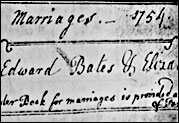 Marriages — 1754.
Edward Bates & Eliza
Book for marriages is provided
of